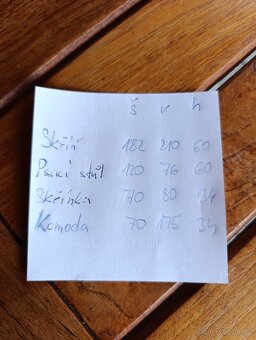 š v h
Skříň 182 210 60
Psací stůl 120 76 60
Skřínka 70 80 34
Komoda 70 175 34